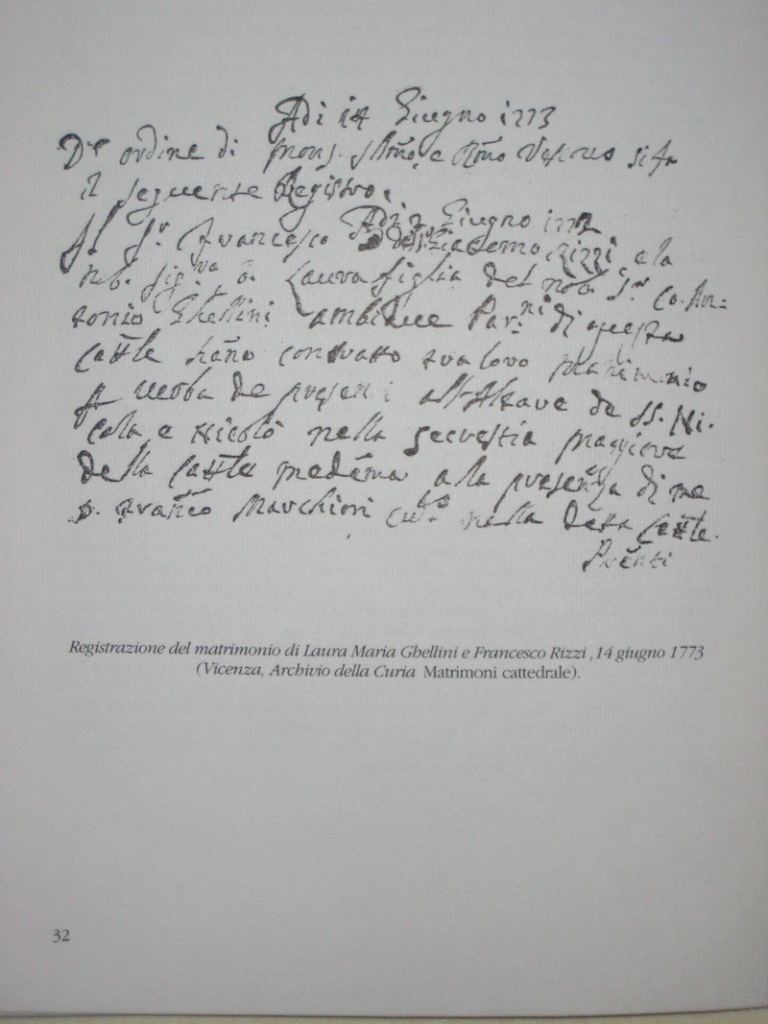 Adi 14 Giugno 1773
D'e ordine di Mons. Illmo, e Rmo Vescovo si fa
il seguente Registro.
Adi 2 Giugno 177
Il Sr. Francesco del Sr Giacomo Rizzi, e la
Nob. Sig.va Laura figlia del nob. Sr. Co. An=
tonio Ghellini ambidue Par.ni di questa
Catt.le hãno contratto tra loro Matrimonio
verba de presenti all'Altare de SS. Ni.
cola e Nicolò nella Secrestia Maggiore
della Catt.le medẽma a la presenza di me
D. Frañco Marchiori nella detta Catt.le.
Prẽnti
Registrazione del matrimonio di Laura Maria Ghellini e Francesco Rizzi ,14 giugno 1773
(Vicenza, Archivio della Curia Matrimoni cattedrale).
32